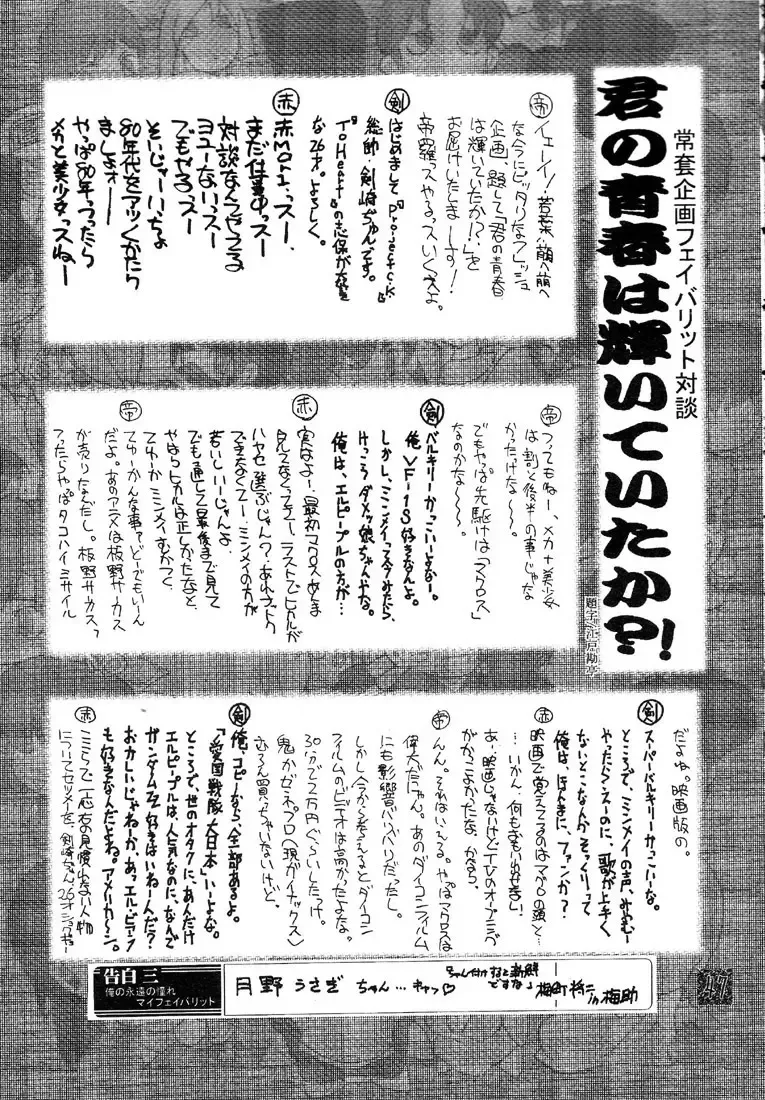 常套企画フェイバリット対談
君の青春は輝いていたか?!
題字/江戸勘亭
帝 イェーイ!
な今にピッタリなフレッシュ
企画、題して『君の青春
は輝いていたか!?』を
お届けいたしまーす!
帝羅ッスやるっスいくスよ。
剣 はじめまして『Project c.k』
総帥・剣崎ぢゅんです。
『To Heart』の志保が大好
な26才。よろしく。
赤 赤Moriっスー、
まだ仕事中っスー
対談なんぞやってる
ヨユーないっスー
でもやるっスー
そいじゃーいっちょ
80年代をアツくかたり
ましょオー
やっぱ80年っつったら
メカと美少女っスねー
帝 つってもねー、メカ+美少女
は割と後半の事じゃな
かったけな〜。
でもやっぱ先駆けは『マクロス』
なのかな〜〜〜。
剣 バルキリーかっこいーよなー。
俺、VF-1S好きなんよ。
しかし、ミンメイって今みたら、
けっこうダメッ娘ちゃんやな。
俺は、エルピープルの方が…
赤 実はよー、最初マクロスあんま
見てなくってよー、ラストでヒカルが
ハヤセ選ぶじゃん?あれナットク
できなくてー、ミンメイの方が
若いしいーじゃんよ
でも通しで最後まで見て
やはりヒカルは正しかったなと、
てゆーかミンメイ、むかつく
帝 てゆーかんな事どーでもいーん
だよ。あのアニメは板野サーカス
が売りだったんだし。板野サーカス、
つったらやっぱタコハイミサイル
だよね。映画版の。
剣 スーパーバルキリーかっこいーな。
ところで、ミンメイの声、みやむー
やったらえーのに、歌が上手く
ないとこなんかそっくりって
俺は、ほんまに、ファンか?
赤 映画で覚えてるのはマクロスの頭と…
…いかん、何もおもい出せまい
あ、映画じゃないけどTVのオープニング
がかっこよかったな、かなり、
帝 んん。それはいえる。やっぱマクロスは
偉大だなん。あのダイコンフィルム
にも影響バリバリだったし。
しかし今から考えるとダイコン
フィルムのビデオは高かったよなァ。
30分で2万円ぐらいしたっけ。
鬼かゼネプロ(現ガイナックス)
もちろん買っちゃいないけど。
剣 俺、コピーなら、全部あるよ。
「愛國戦隊大日本」いーよな。
ところで、世のオタクに、あんだけ
エルピープルは、人気なのに、なんで
ガンダムZZ好きはいねーんだ?
おかしいじゃねーか。あっエルピープル
も好きなんだよね。アメリカーン。
赤 ここらで一応お見慣れない人物
についてセツメイを、剣崎ぢゅん26才
告白三
俺の永遠の憧れ
マイフェイバリット
月野うさぎちゃん…キャッ♡
ちゃん付けすると新鮮
ですなァ
梅町柊二/梅助
47